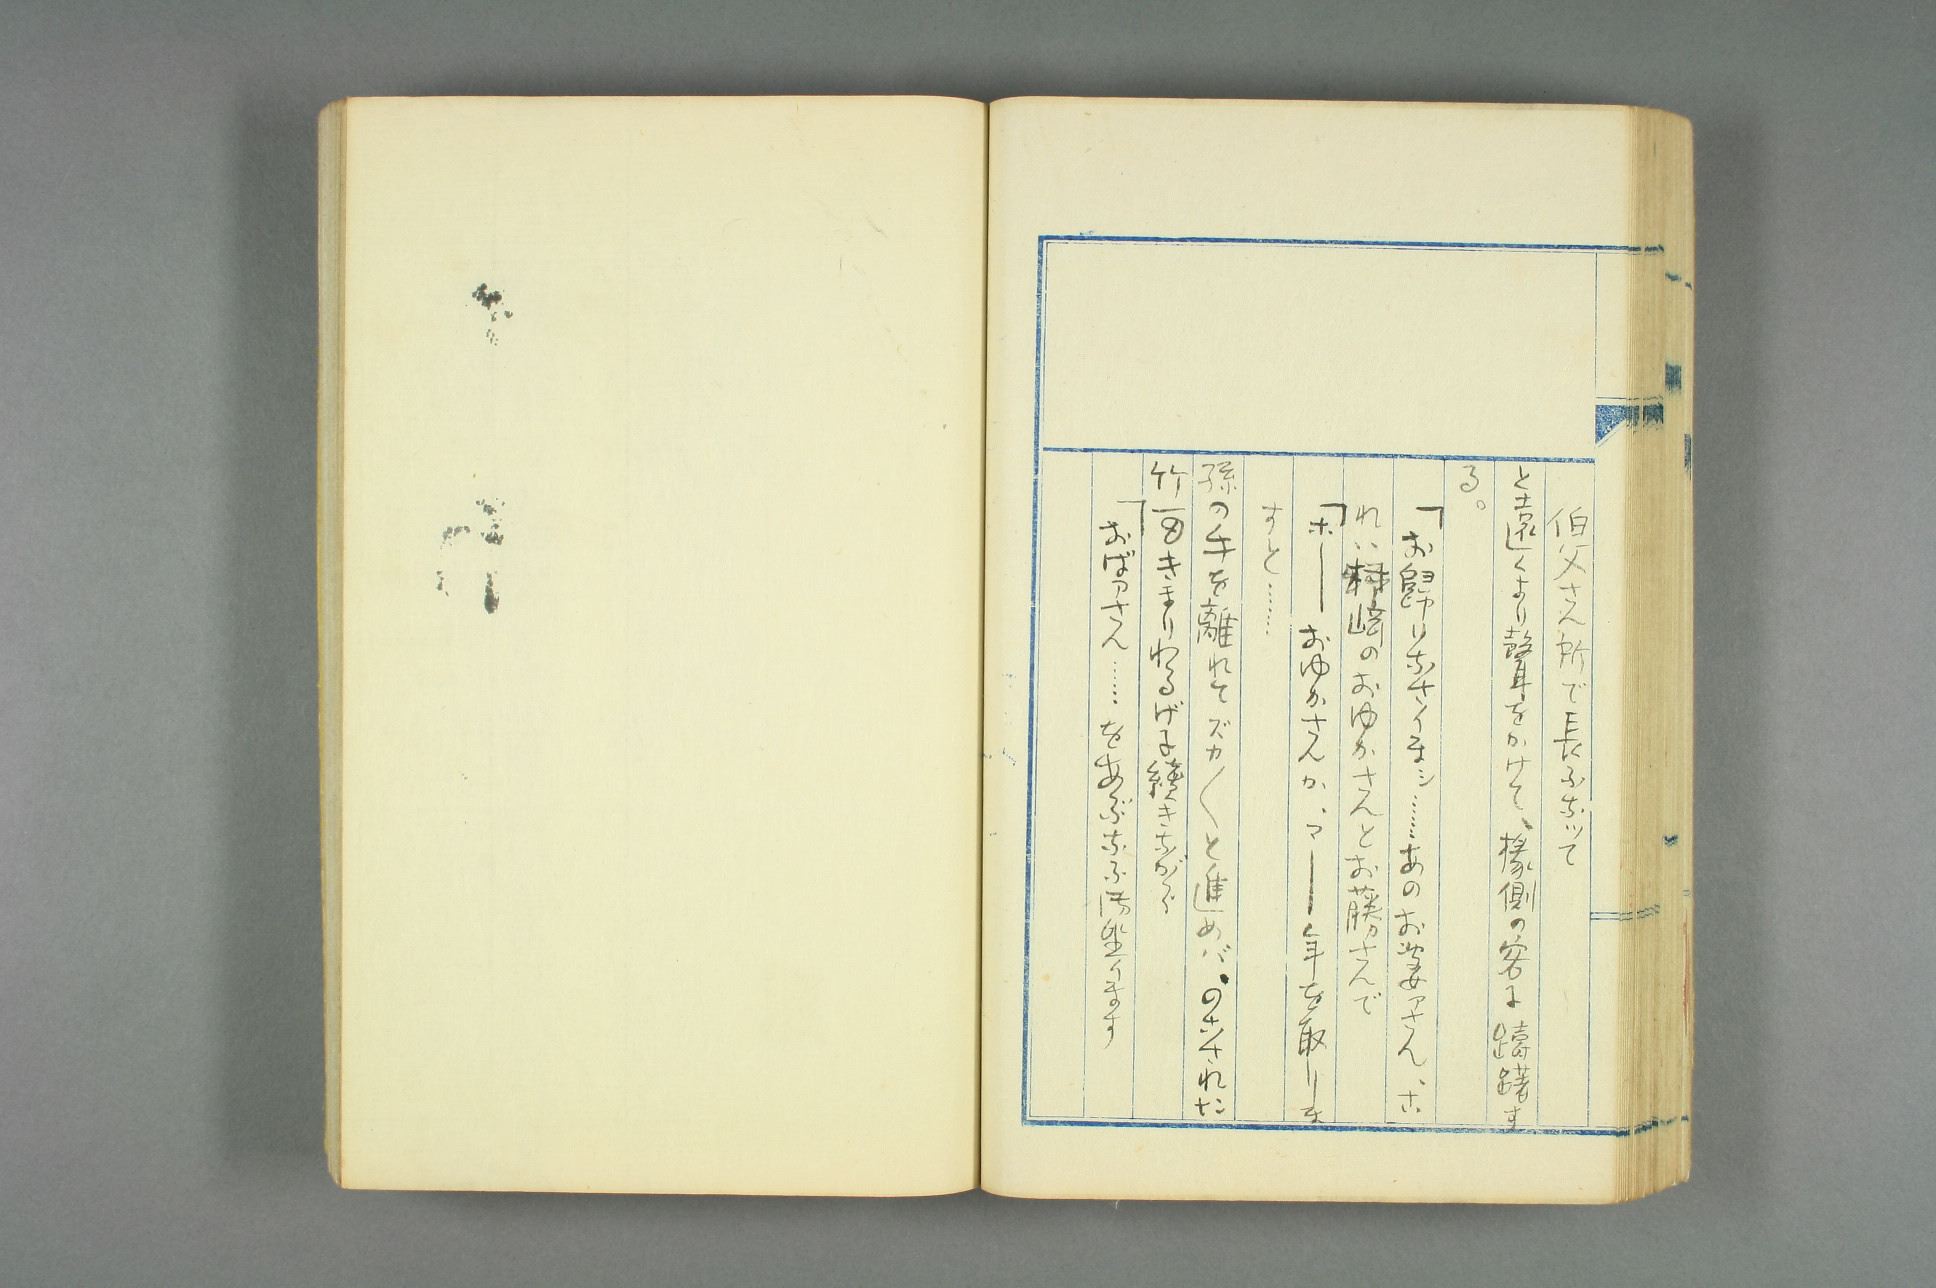 伯父さん所で長ふなッて
と遠くより聲をかけて、椽側の客に躊躇す
る。
「お歸りなさイまシ……あのお婆アさん、ホ
れ、峠崎のおゆかさんとお藤さんで
「ホーーおゆかさんか、マーー年を取りま
すと……
孫の手を離れてズカ〱と進めバ、のこされた
竹一もきまりわるげに續きながら
「おばアさん……をあぶなふ御坐イます